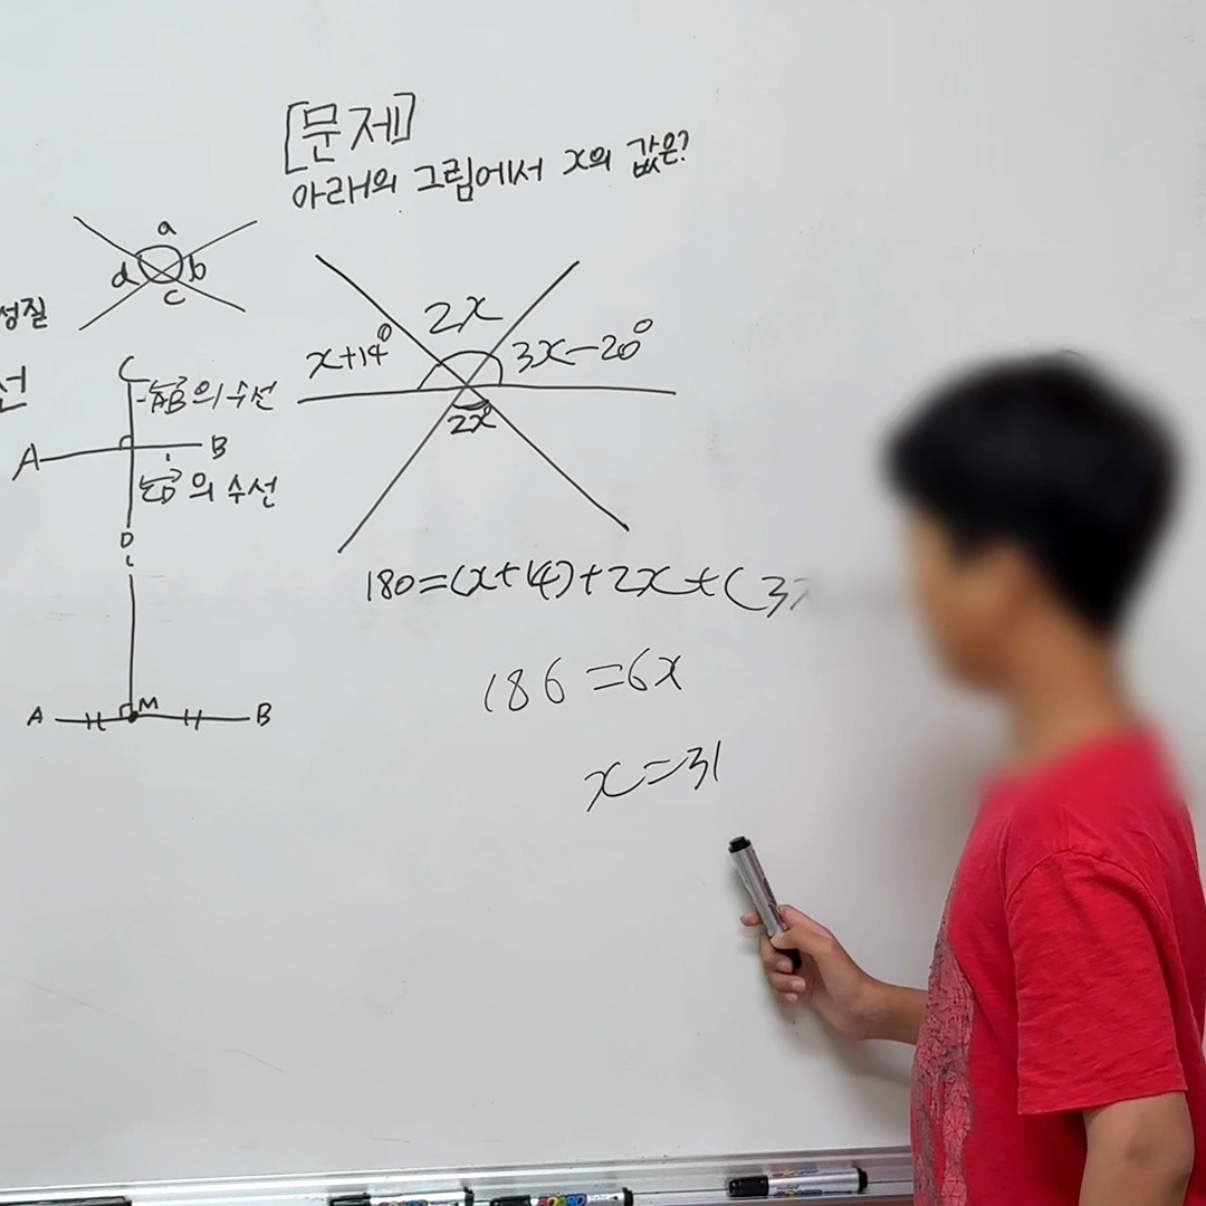 [문제]
아래의 그림에서 x의 값은?
a
d b
c
성질
선
2x
x+14° 3x-20°
2x°
C
AB의 수선
A B
CD의 수선
D
180=(x+14)+2x+(3x
186=6x
A M B
x=31